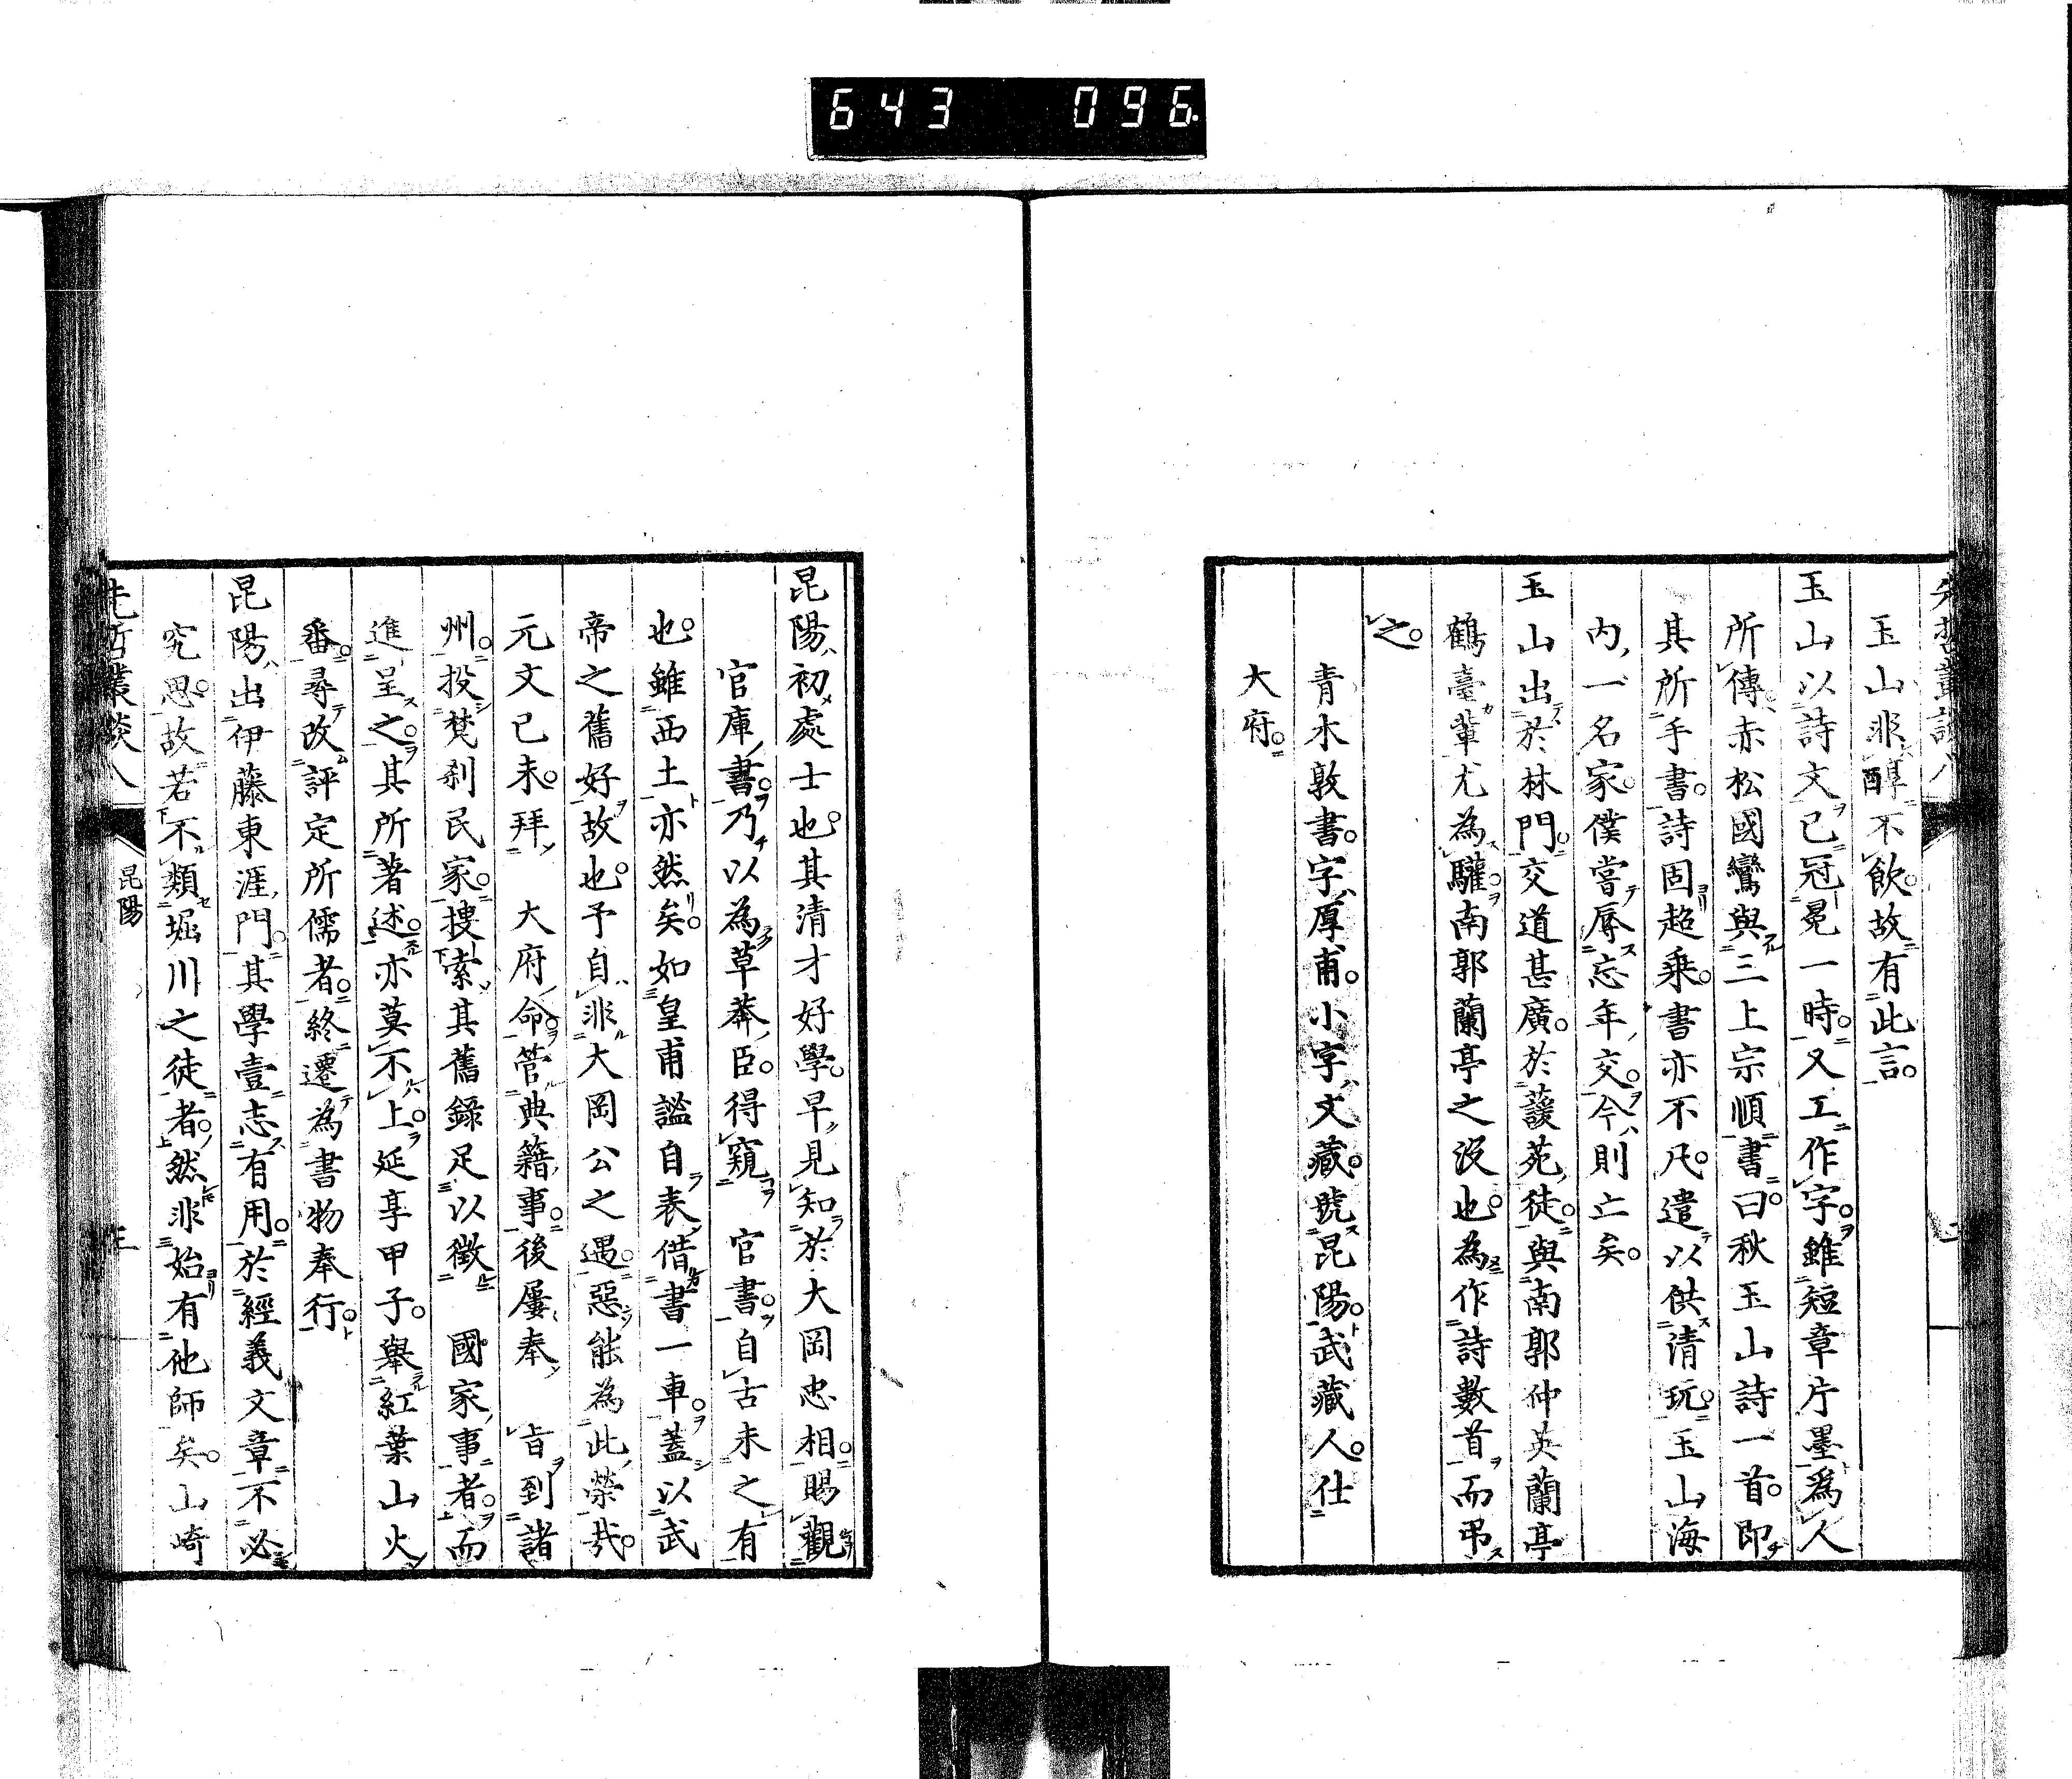 643 096
先哲叢談八
玉山非醇不飲故有此言
玉山以詩文已冠冕一時又工作字雖短章片墨爲人
所傳赤松國鸞與三上宗順書曰秋玉山詩一首即
其所手書詩固超乘書亦不凡遣以供清玩玉山海
内一名家僕嘗辱忘年交今則亡矣
玉山出於林門交道甚廣於蘐苑徒與南郭仲英蘭亭
鶴臺輩尤為驩南郭蘭亭之沒也為作詩數首而弔
之
青木敦書字厚甫小字文藏號昆陽武藏人仕
大府
昆陽初處士也其清才好學早見知於大岡忠相賜觀
官庫書乃以為草莽臣得窺 官書自古未之有
也雖西土亦然矣如皇甫謐自表借書一車蓋以武
帝之舊好故也予自非大岡公之遇惡能為此榮哉
元文已未拜 大府命管典籍事後屢奉 旨到諸
州投梵刹民家捜索其舊錄足以徵 國家事者而
進呈之其所著述亦莫不上延享甲子舉紅葉山火
番尋改評定所儒者終遷為書物奉行
昆陽出伊藤東涯門其學壹志有用於經義文章不必
究思故若不類堀川之徒者然非始有他師矣山崎
先哲叢談八
昆陽